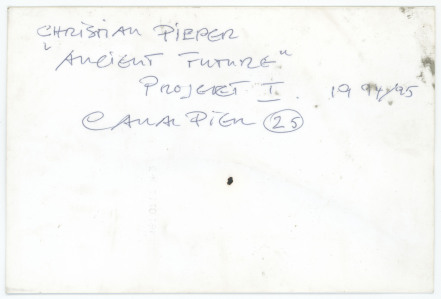 CHRISTIAN PIEPER
"ANCIENT FUTURE"
PROJEKT I. 1994/95
CANAL PIER 25